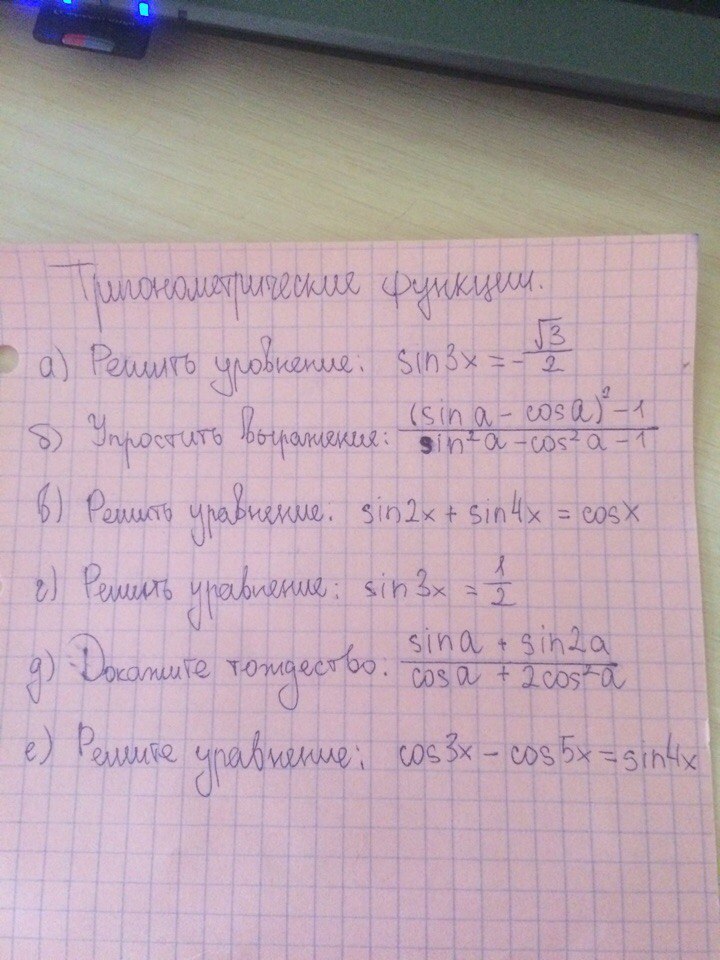 Тригонометрические функции.
а) Решить уровнение: sin3x = -√3/2
б) Упростить выражение: (sin a - cos a)² - 1 / sin²a - cos²a - 1
в) Решить уравнение: sin2x + sin4x = cosx
г) Решить уравнение: sin3x = 1/2
д) Докажите тождество: sina + sin2a / cosa + 2cos²a
е) Решите уравнение: cos3x - cos5x = sin4x